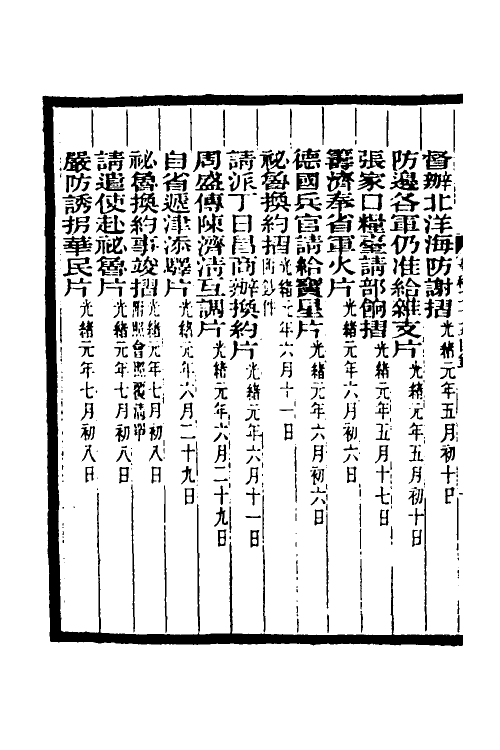 督辦北洋海防謝摺 光緒元年五月初十日
防邊各軍仍准給雜支片 光緒元年五月初十日
張家口糧臺請部餉摺 光緒元年五月十七日
籌濟奉省軍火片 光緒元年六月初六日
德國兵官請給寶星片 光緒元年六月初六日
祕魯換約摺 附鈔件 光緒元年六月十一日
請派丁日昌商辦換約片 光緒元年六月十一日
周盛傳陳濟清互調片 光緒元年六月二十九日
自省遞津添驛片 光緒元年六月二十九日
祕魯換約事竣摺 附照會照覆清單 光緒元年七月初八日
請遣使赴祕魯片 光緒元年七月初八日
嚴防誘拐華民片 光緒元年七月初八日